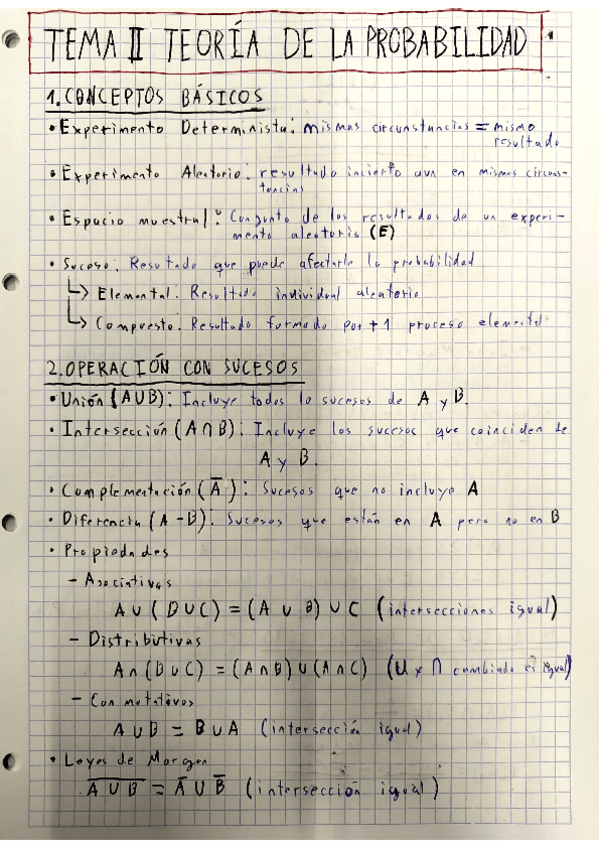 TEMA II TEORÍA DE LA PROBABILIDAD
1. CONCEPTOS BÁSICOS
• Experimento Determinista: mismas circunstancias = mismo
resultado
• Experimento Aleatorio: resultado incierto aun en mismas circuns-
tancias
• Espacio muestral: Conjunto de los resultados de un experi-
mento aleatorio (E)
• Suceso: Resultado que puede afectarle la probabilidad
↳ Elemental: Resultado individual aleatorio
↳ Compuesto: Resultado formado por + 1 proceso elemental
2. OPERACIÓN CON SUCESOS
• Unión (A∪B): Incluye todos lo sucesos de A y B.
• Intersección (A∩B): Incluye los sucesos que coinciden de
A y B.
• Complementación (A̅): Sucesos que no incluye A
• Diferencia (A-B): Sucesos que están en A pero no en B
• Propiedades
- Asociativas
A∪(B∪C) = (A∪B)∪C (intersecciones igual)
- Distributivas
A∩(B∪C) = (A∩B)∪(A∩C) (∪ y ∩ cambiado es igual)
- Conmutativas
A∪B = B∪A (intersección igual)
• Leyes de Morgan
A̅ ̅∪̅ ̅B̅ = A̅ ∪ B̅ (intersección igual)